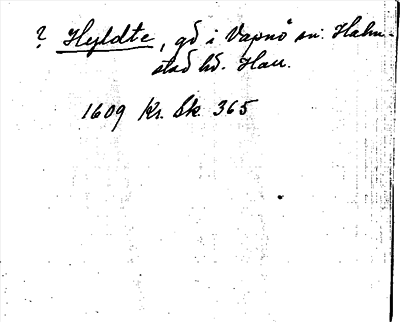 ? Hyldte, gd i Vapnö sn. Halm-
stad hd. Hall.
1609 Kr. Sk. 365